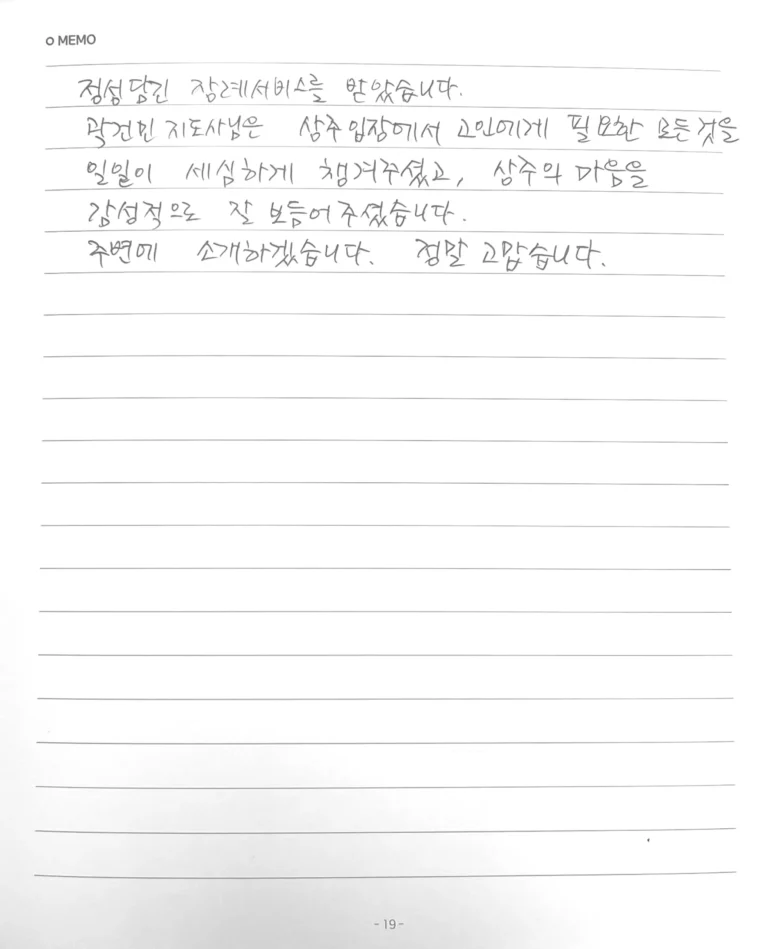 O MEMO
정성담긴 장례서비스를 받았습니다.
곽건민 지도사님은 상주입장에서 고인에게 필요한 모든것을
일일이 세심하게 챙겨주셨고, 상주의 마음을
감성적으로 잘 보듬어주셨습니다.
주변에 소개하겠습니다. 정말 고맙습니다.
- 19 -